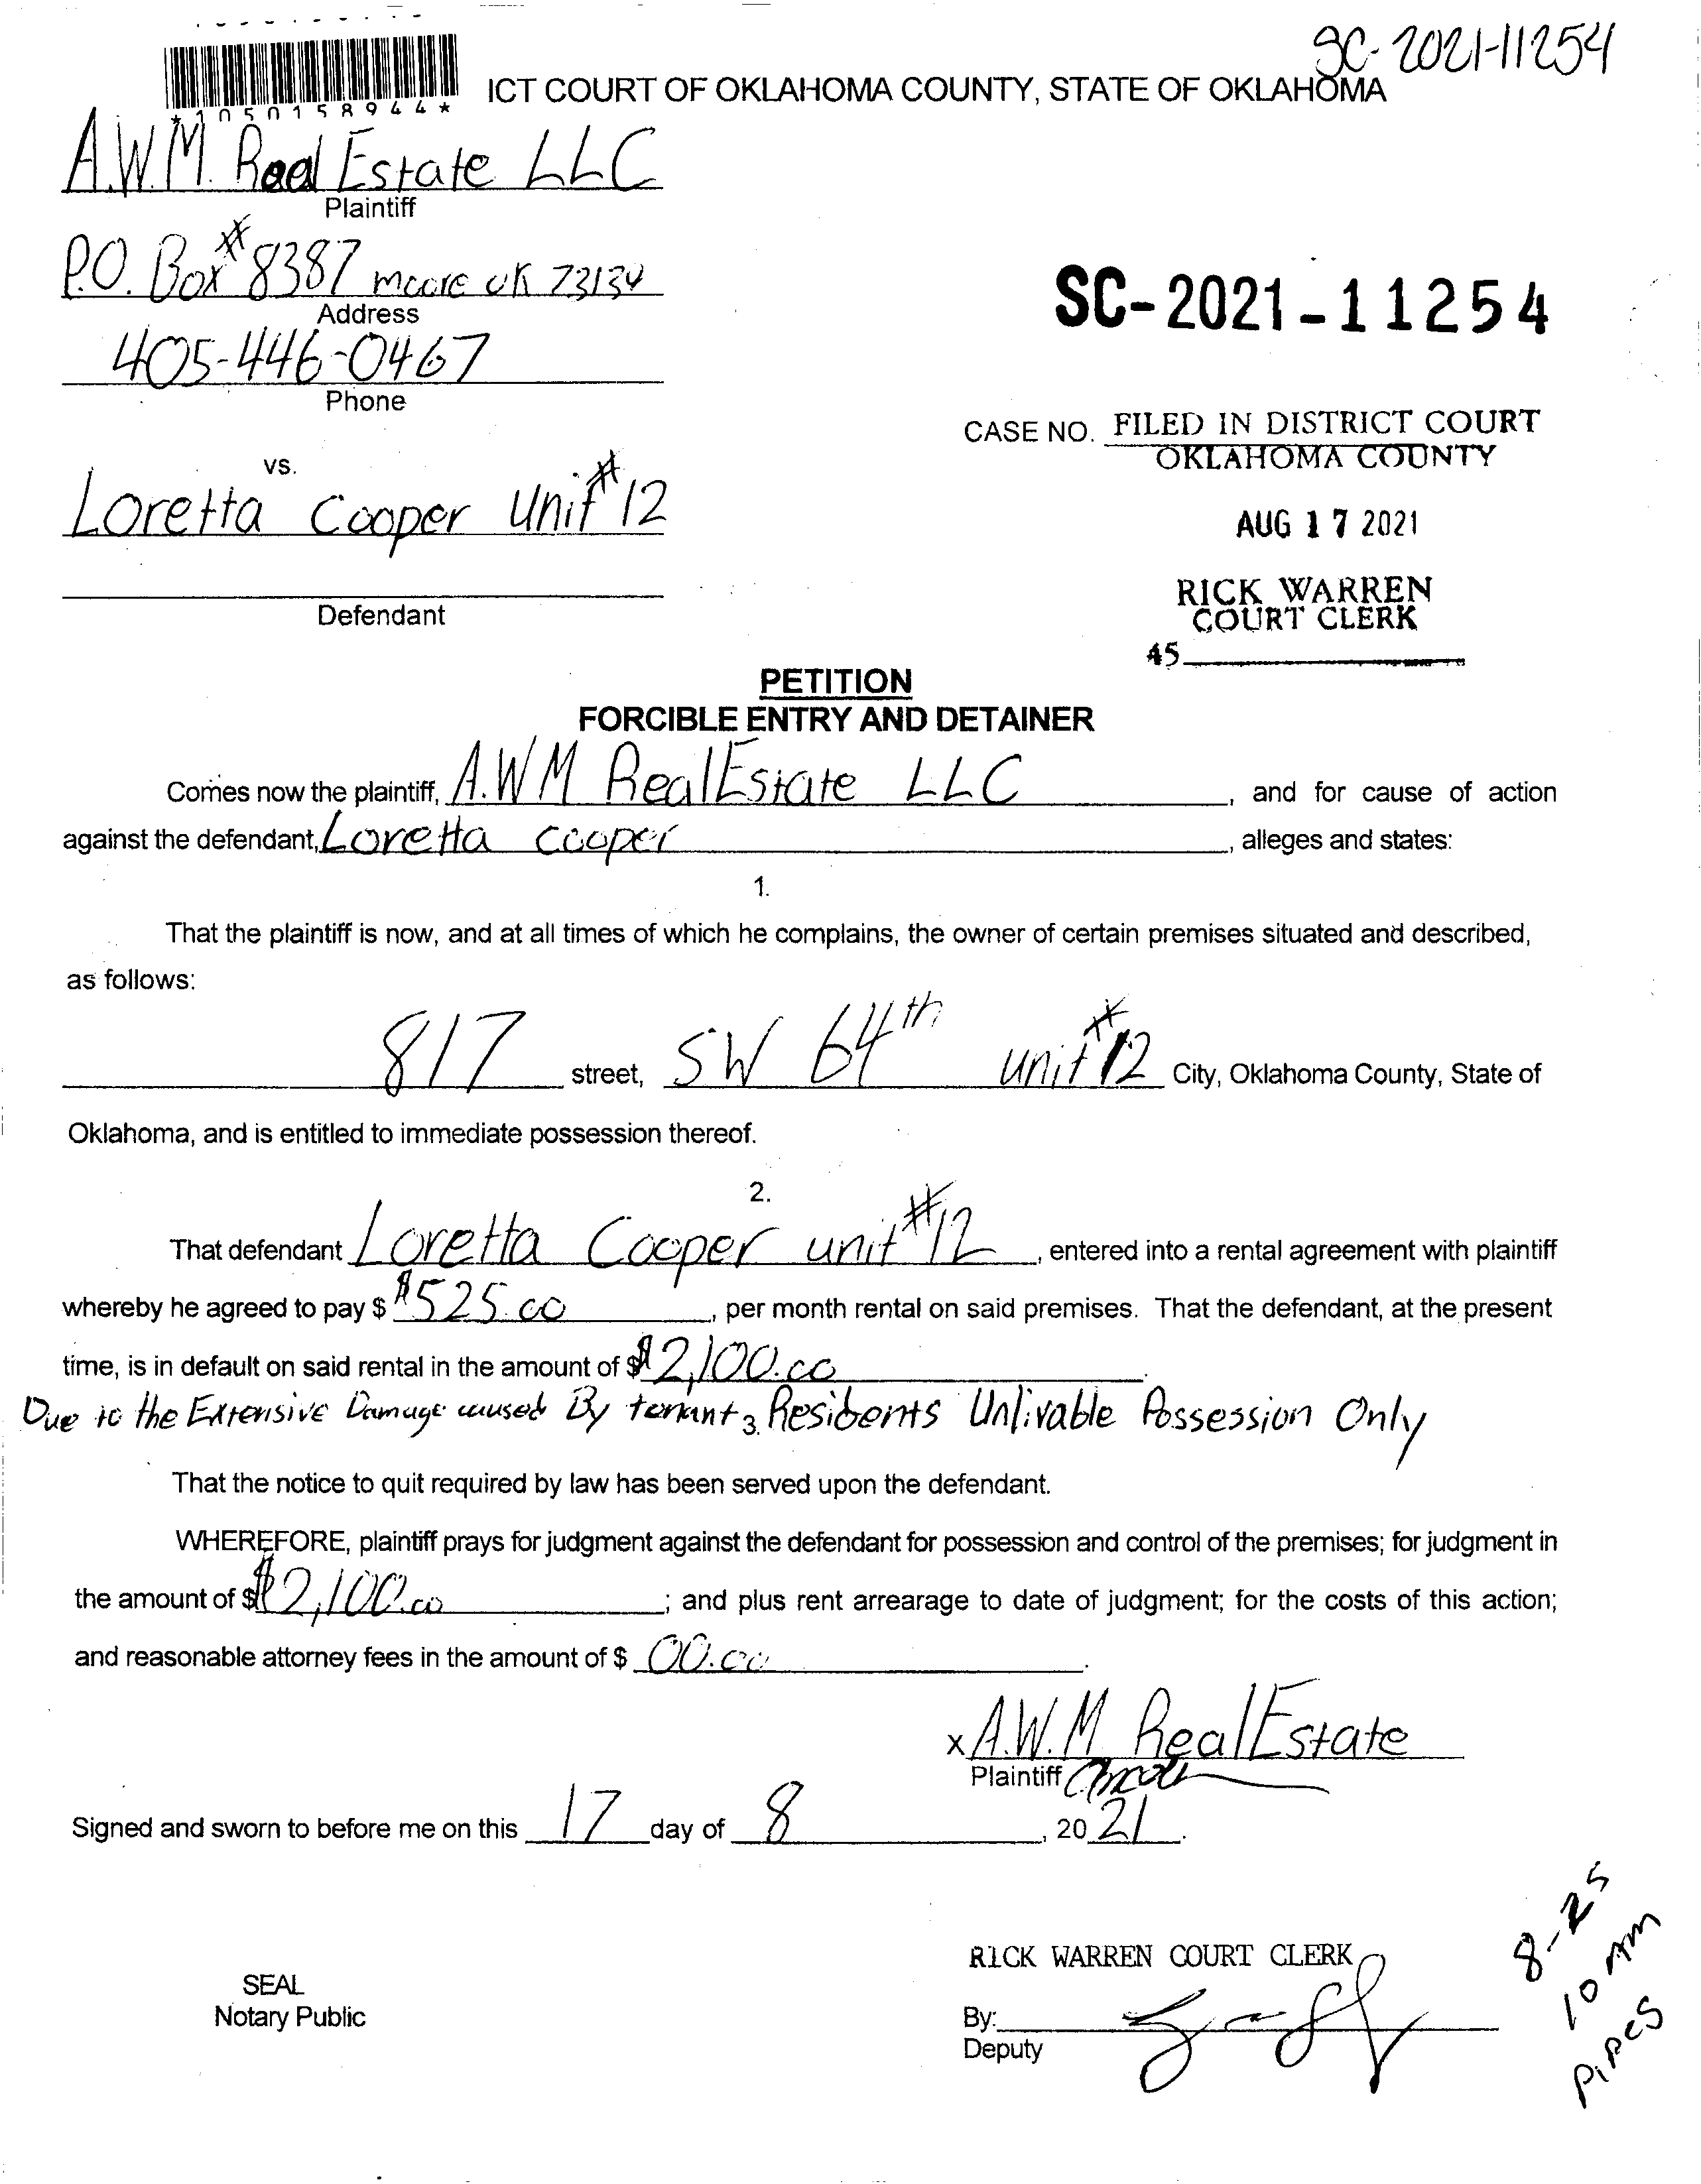 SC-2021-11254
*1050158944*
ICT COURT OF OKLAHOMA COUNTY, STATE OF OKLAHOMA
A.W.M. Real Estate LLC
Plaintiff
P.O. Box # 8387 moore OK
Address
405-446-0467
Phone
SC-2021-11254
CASE NO. FILED IN DISTRICT COURT
OKLAHOMA COUNTY
AUG 17 2021
RICK WARREN
COURT CLERK
45
vs.
Loretta Cooper Unit #12
Defendant
PETITION
FORCIBLE ENTRY AND DETAINER
Comes now the plaintiff, A.WM RealEstate LLC, and for cause of action
against the defendant, Loretta cooper, alleges and states:
1.
That the plaintiff is now, and at all times of which he complains, the owner of certain premises situated and described,
as follows:
817 street, SW 64th unit #12 City, Oklahoma County, State of
Oklahoma, and is entitled to immediate possession thereof.
2.
That defendant Loretta Cooper unit #12, entered into a rental agreement with plaintiff
whereby he agreed to pay $ $525.00, per month rental on said premises. That the defendant, at the present
time, is in default on said rental in the amount of $ $2,100.00.
Due to the Extensive Damage caused By tenant Residents Unlivable Possession Only
3.
That the notice to quit required by law has been served upon the defendant.
WHEREFORE, plaintiff prays for judgment against the defendant for possession and control of the premises; for judgment in
the amount of $ $2,100.00; and plus rent arrearage to date of judgment; for the costs of this action;
and reasonable attorney fees in the amount of $ 00.00.
x A.W.M RealEstate
Plaintiff
Signed and sworn to before me on this 17 day of 8, 2021.
SEAL
Notary Public
RICK WARREN COURT CLERK
By:
Deputy
8-25
10 AM
Pipes